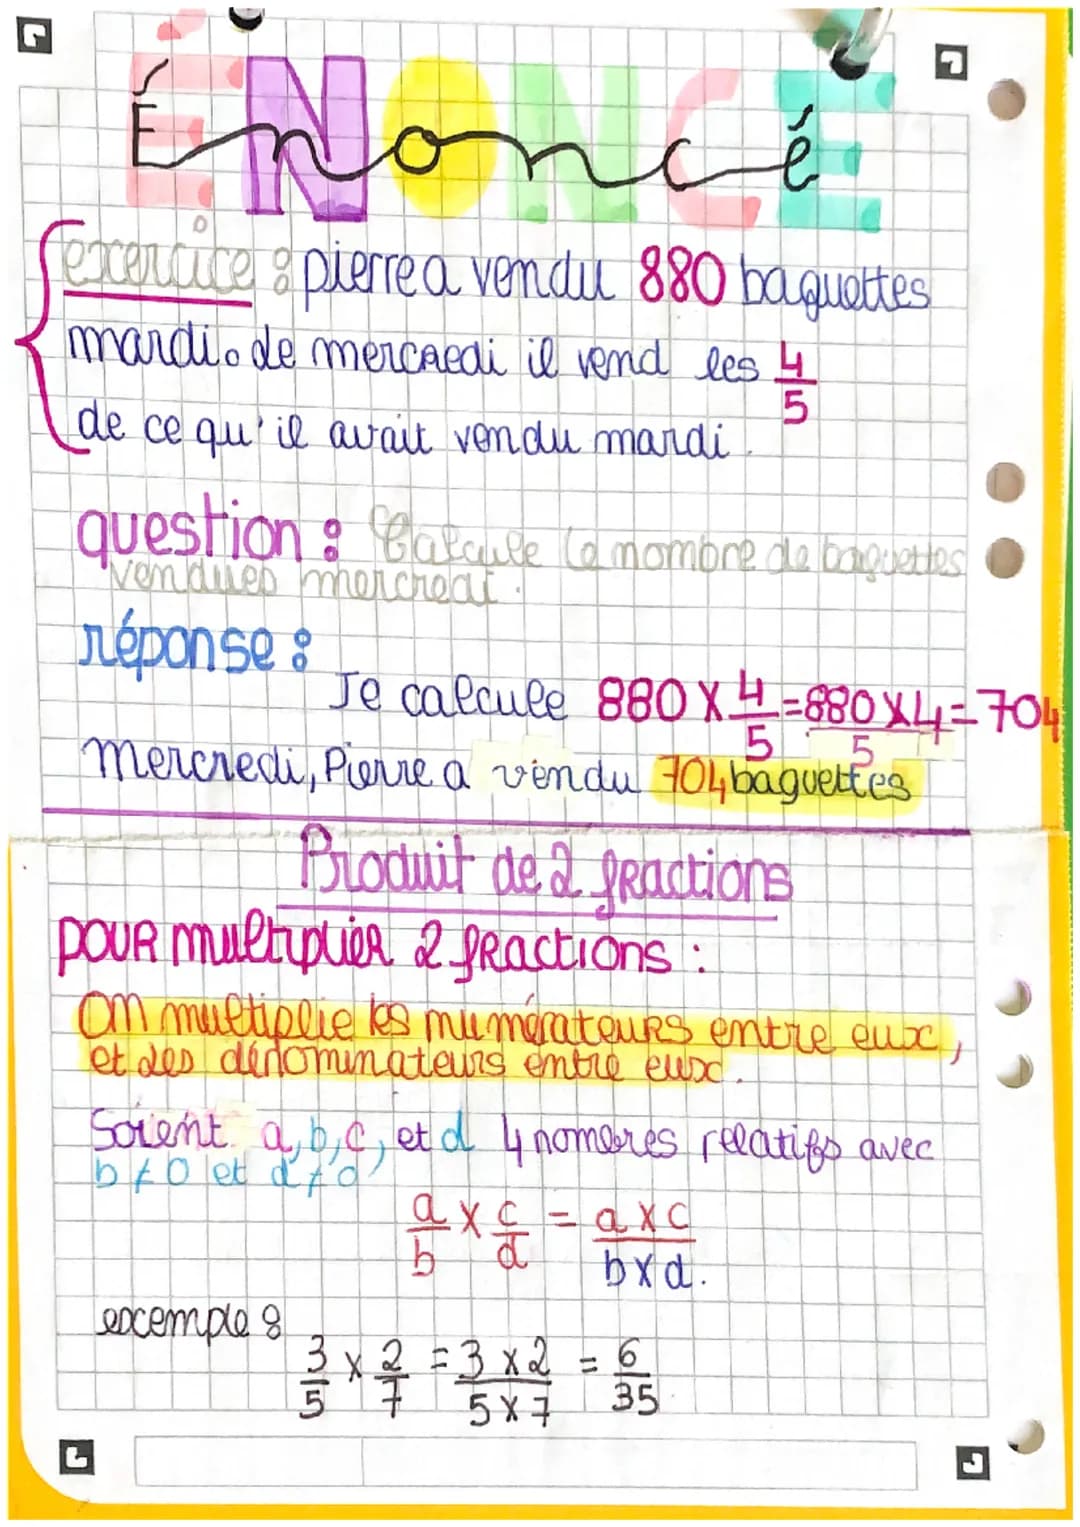 ÉNONCÉ
Énoncé
exercice : pierre a vendu 880 baguettes
mardi. de mercredi il vend les 4/5
de ce qu'il avait vendu mardi.
question : Calcule le nombre de baguettes
vendues mercredi.
réponse :
Je calcule 880 X 4/5 = 880 X 4/5 = 704
Mercredi, Pierre a vendu 704 baguettes
Produit de 2 fractions
pour multiplier 2 fractions :
On multiplie les numérateurs entre eux,
et les dénominateurs entre eux.
Soient a, b, c, et d 4 nombres relatifs avec
b ≠ 0 et d ≠ 0
a/b x c/d = a x c/b x d.
exemple :
3/5 x 2/7 = 3 x 2/5 x 7 = 6/35